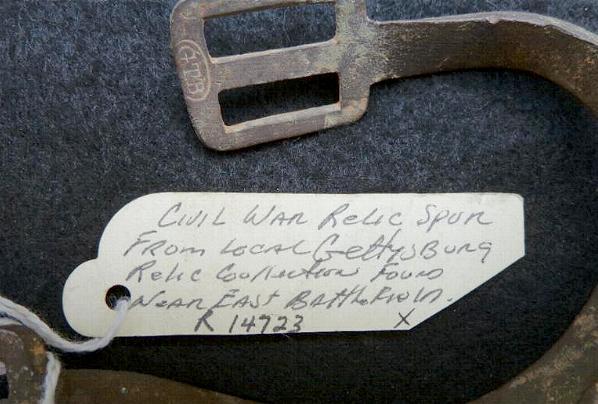 HTB
CIVIL WAR Relic SPUR
FROM LOCAL GettysBURG
Relic Collection FOUND
NEAR EAST BAttleField.
R 14723 X